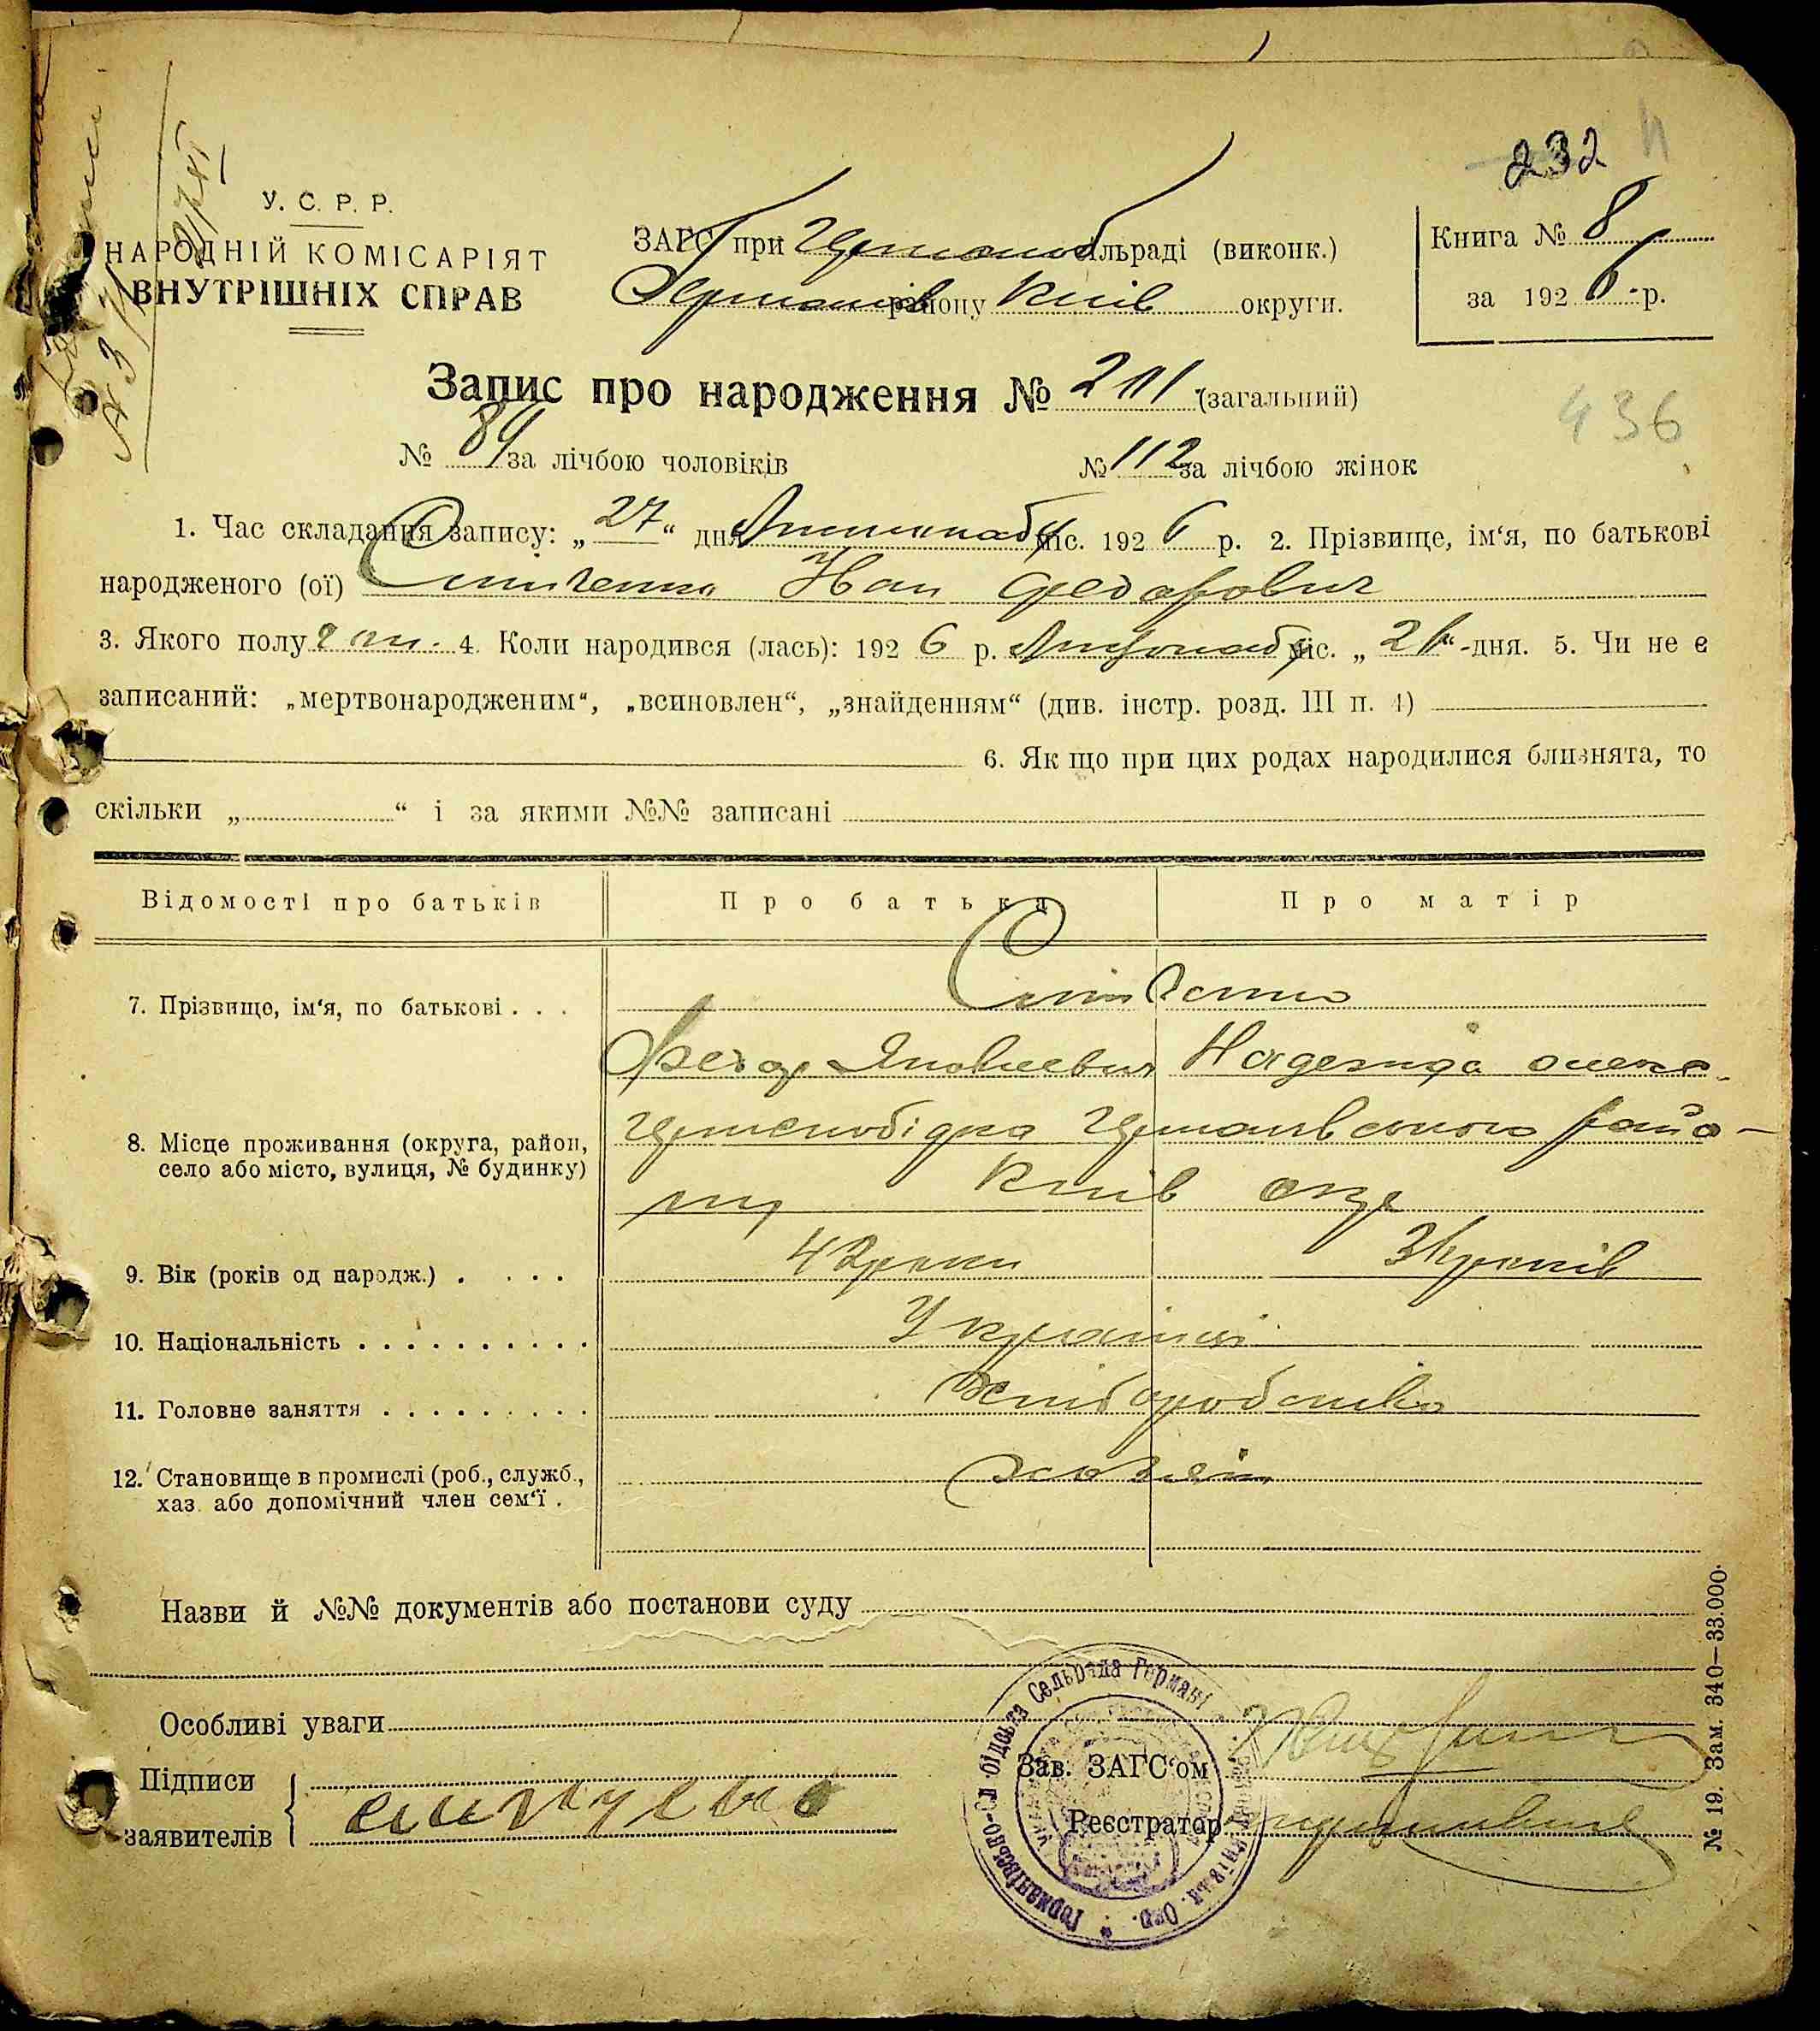 232
У. С. Р. Р.
НАРОДНІЙ КОМІСАРІЯТ
ВНУТРІШНІХ СПРАВ
ЗАГС при сільраді (виконк.)
району Київ округи.
Книга № 8
за 1926 р.
Запис про народження № 201 (загальний)
436
№ 89 за лічбою чоловіків № 112 за лічбою жінок
1. Час складання запису: „27“ дня Листопаду міс. 1926 р. 2. Прізвище, ім‘я, по батькові
народженого (ої) Іван Федорович
3. Якого полу чол. 4. Коли народився (лась): 1926 р. Листопаду міс. „21“ дня. 5. Чи не є
записаний: „мертвонародженим“, „всиновлен“, „знайденням“ (див. інстр. розд. III п. 4)
6. Як що при цих родах народилися близнята, то
скільки „ “ і за якими №№ записані
Відомості про батьків Про батька Про матір
7. Прізвище, ім‘я, по батькові . . .
Федор Яковлевич Надежда
8. Місце проживання (округа, район,
село або місто, вулиця, № будинку)
Германівського райо-
ну Київ окр
9. Вік (років од народж.) . . . . 42 роки
10. Національність . . . . . . . . . . Українці
11. Головне заняття . . . . . . . . . Хліборобство
12. Становище в промислі (роб., служб.,
хаз. або допомічний член сем‘ї .
Назви й №№ документів або постанови суду
Особливі уваги
Підписи
заявителів
Зав. ЗАГС‘ом
Реєстратор
№ 19. Зам. 340—33.000.